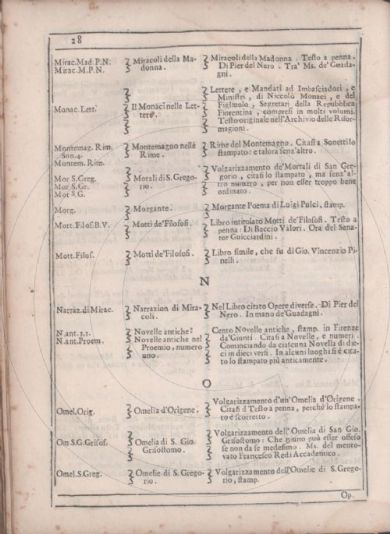 28
Mirac.Mad.P.N. Miracoli della Ma- Miracoli della Madonna. Testo a penna.
Mirac.M.P.N. donna. Di Pier del Nero. Tra' Ms. de' Guada-
gni.
Lettere, e Mandati ad Imbasciadori, e
Ministri, di Niccolò Monaci, e del
Monac.Lett. Il Monaci nelle Let- Figliuolo, Segretari della Repubblica
tere. Fiorentina, compresi in molti volumi.
Testo originale nell'Archivio delle Rifor-
magioni.
Montemag. Rim. Montemagno nelle Rime del Montemagno. Citasi a Sonetti lo
Son.4. Rime. stampato: e talora senz'altro.
Montem. Rim.
Volgarizzamento de' Morali di San Gre-
Mor S.Greg. Morali di S.Grego- gorio, citasi lo stampato, ma senz' al-
Mor S.Gr. rio. tro numero, per non esser troppo bene
Mor S.G. ordinato.
Morg. Morgante. Morgante Poema di Luigi Pulci, stamp.
Mott.Filos.B.V. Motti de' Filosofi. Libro intitolato Motti de' Filosofi. Testo a
penna. Di Baccio Valori. Ora del Sena-
tor Guicciardini.
Mott.Filos. Motti de' Filosofi. Libro simile, che fu di Gio. Vincenzio Pi-
nelli.
N
Narraz.di Mirac. Narrazion di Mira- Nel Libro citato Opere diverse. Di Pier del
coli. Nero. In mano de' Guadagni.
N.ant.1.1. Novelle antiche? Cento Novelle antiche, stamp. in Firenze
N.ant.Proem. Novelle antiche nel da'Giunti. Citasi a Novelle, e numeri.
Proemio, numero Cominciando da ciascuna Novella di die-
uno. ci in dieci versi. In alcuni luoghi si è cita-
to lo stampato più anticamente.
O
Volgarizzamento d'un' Omelia d'Origene.
Omel.Orig. Omelia d'Origene. Citasi il Testo a penna, perchè lo stampa-
to è scorretto.
Volgarizzamento dell' Omelia di San Gio.
Om S.G.Grisos. Omelia di S. Gio. Grisostomo: Che niuno può esser offeso
Grisostomo. se non da se medesimo. Ms. del mento-
vato Francesco Redi Accademico.
Omel.S.Greg. Omelie di S. Grego- Volgarizzamento dell'Omelie di S. Grego-
rio. rio, stamp.
Op.